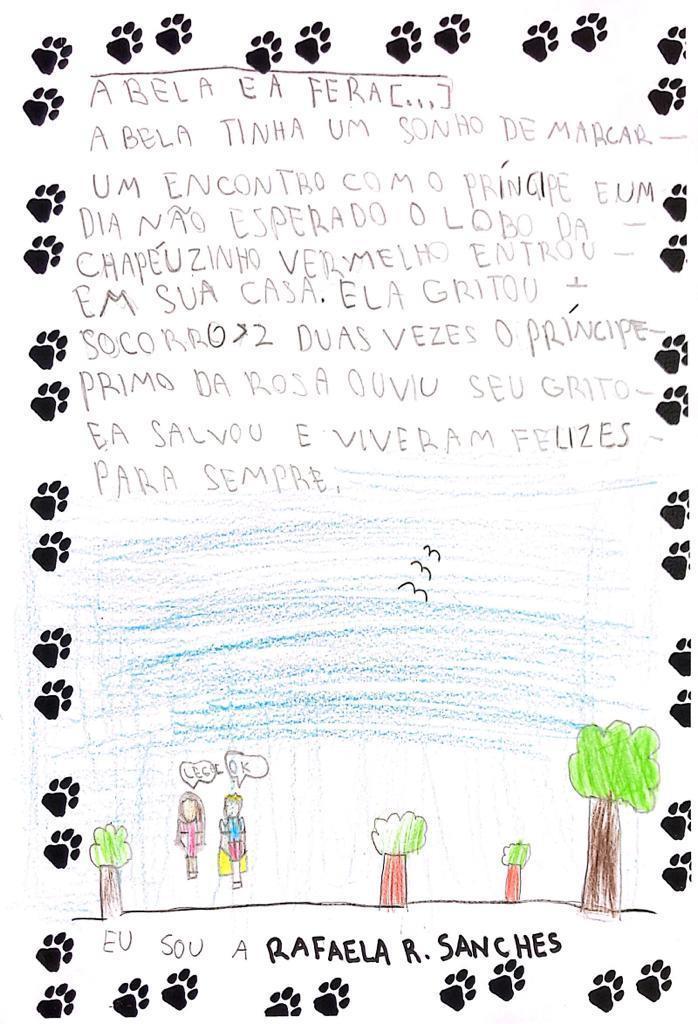 A BELA E A FERA[...]
A BELA TINHA UM SONHO DE MARCAR —
UM ENCONTRO COM O PRÍNCIPE E UM
DIA NÃO ESPERADO O LOBO DA —
CHAPÉUZINHO VERMELHO ENTROU —
EM SUA CASA. ELA GRITOU —
SOCORRO>2 DUAS VEZES O PRÍNCIPE—
PRIMO DA ROSA OUVIU SEU GRITO—
EA SALVOU E VIVERAM FELIZES —
PARA SEMPRE.
OK
EU SOU A RAFAELA R. SANCHES